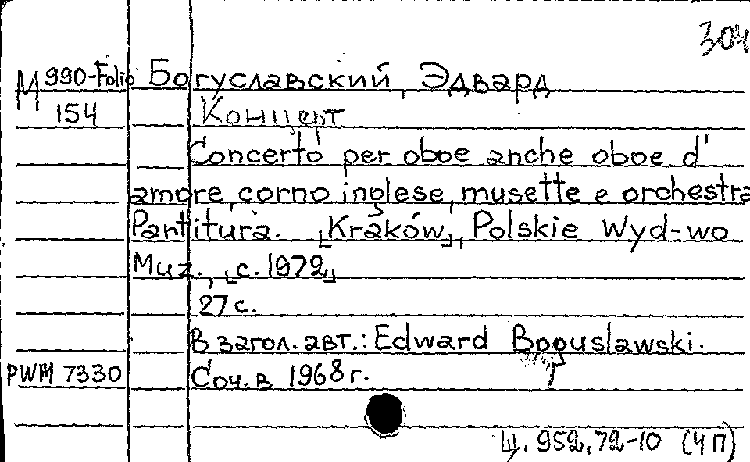 304
М 990-Folio Богуславский, Эдвард
154 Концерт
Concerto per oboe anche oboe d'
amore, corno inglese, musette e orchestra
Partitura. [Kraków], Polskie Wyd-wo
Muz., [c. 1972]
27 с.
В загол. авт.: Edward Boguslawski.
PWM 7330 Соч. в 1968 г.
Ц. 952, 72-10 (4П)